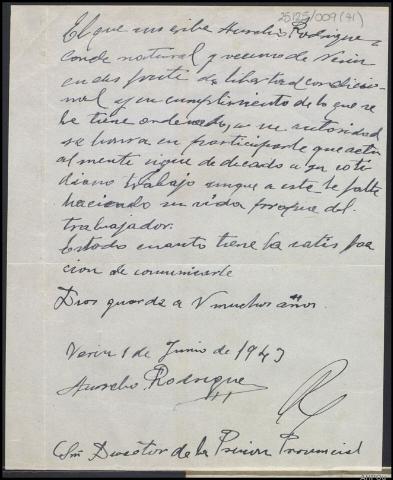 25125/009 (41)
El que suscribe Aurelio Rodrigue
conde natural y vecino de Verin
en disfrute de libertad condicio-
nal y en cumplimiento de lo que se
le tiene ordenado, a su autoridad
se honra en participarle que actu
almente sigue dedicado a su coti
diano trabajo unque a este le falte
haciendo su vida propia del
trabajador.
Es todo cuanto tiene la satisfac
cion de comunicarle
Dios guarde a V muchos años.
Verin 1 de Junio de 1943
Aurelio Rodrigue
Sr Director de la Prision Provincial